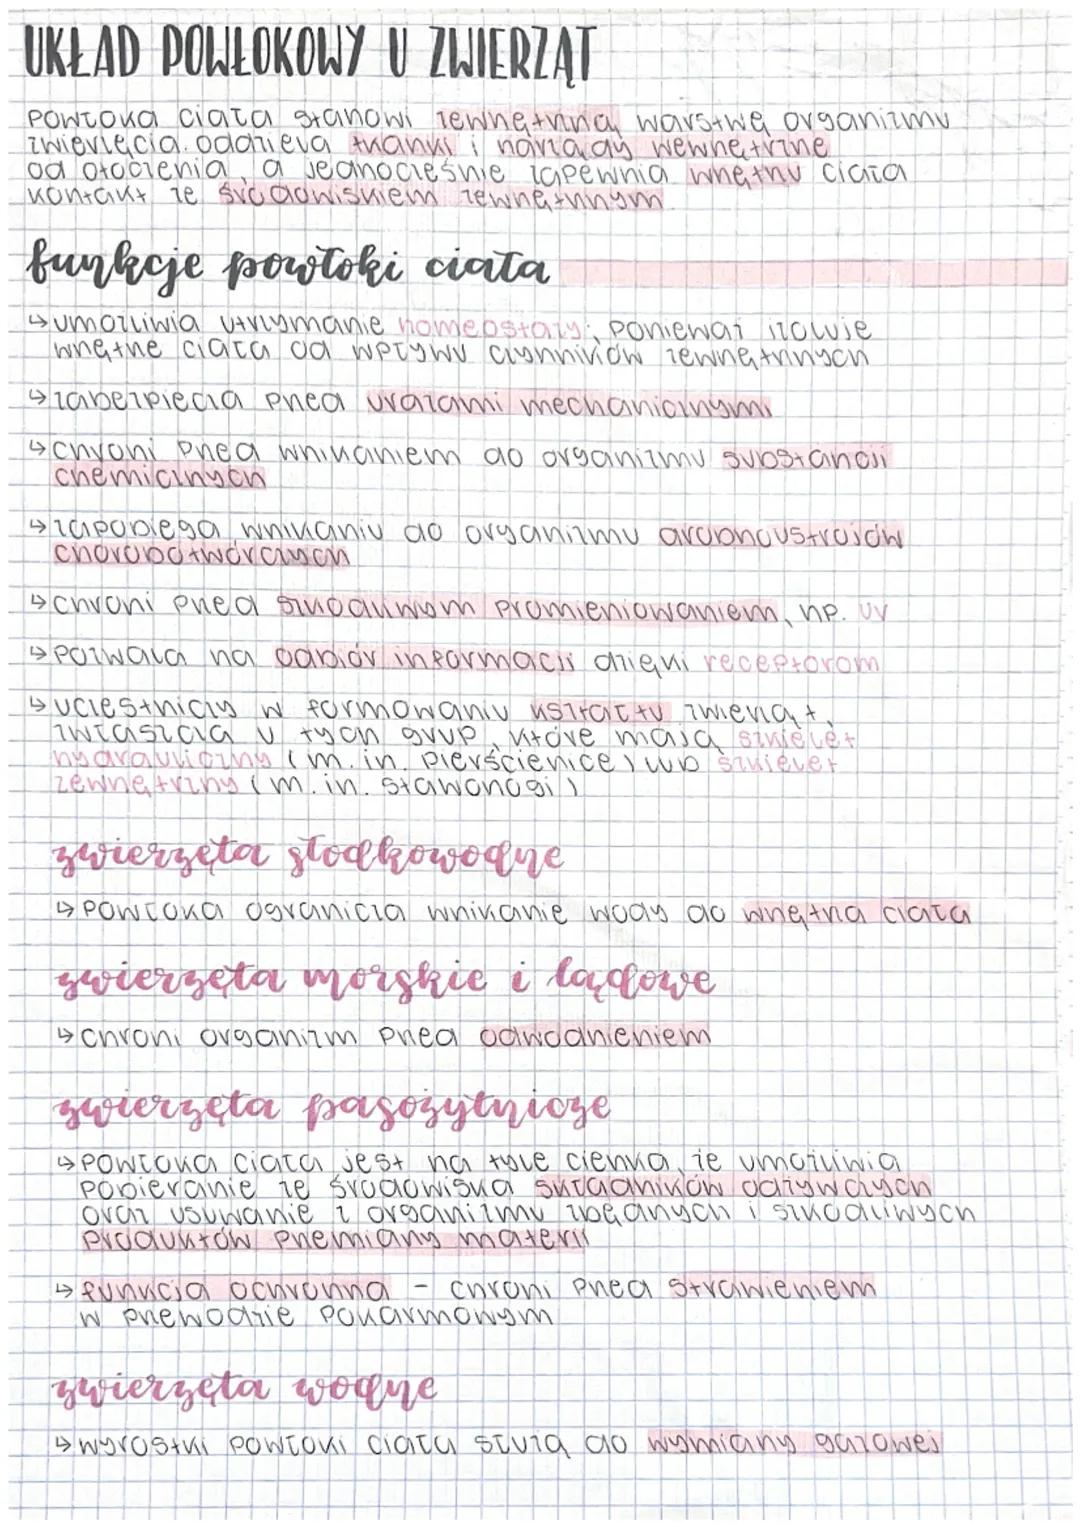 UKŁAD POWŁOKOWY U ZWIERZĄT
powłoka ciała stanowi zewnętrzną warstwę organizmu
zwierzęcia. oddziela tkanki i narządy wewnętrzne
od otoczenia, a jednocześnie zapewnia wnętrzu ciała
kontakt ze środowiskiem zewnętrznym
funkcje powłoki ciała
↳ umożliwia utrzymanie homeostazy, ponieważ izoluje
wnętrze ciała od wpływu czynników zewnętrznych
↳ zabezpiecza przed urazami mechanicznymi
↳ chroni przed wnikaniem do organizmu substancji
chemicznych
↳ zapobiega wnikaniu do organizmu drobnoustrojów
chorobotwórczych
↳ chroni przed szkodliwym promieniowaniem, np. UV
↳ pozwala na odbiór informacji dzięki receptorom
↳ uczestniczy w formowaniu kształtu zwierząt,
zwłaszcza u tych grup, które mają szkielet
hydrauliczny (m.in. pierścienice) lub szkielet
zewnętrzny (m.in. stawonogi)
zwierzęta słodkowodne
↳ powłoka ogranicza wnikanie wody do wnętrza ciała
zwierzęta morskie i lądowe
↳ chroni organizm przed odwodnieniem
zwierzęta pasożytnicze
↳ powłoka ciała jest na tyle cienka, że umożliwia
pobieranie ze środowiska składników odżywczych
oraz usuwanie z organizmu zbędnych i szkodliwych
produktów przemiany materii
↳ funkcja ochronna - chroni przed strawieniem
w przewodzie pokarmowym
zwierzęta wodne
↳ wyrostki powłoki ciała służą do wymiany gazowej